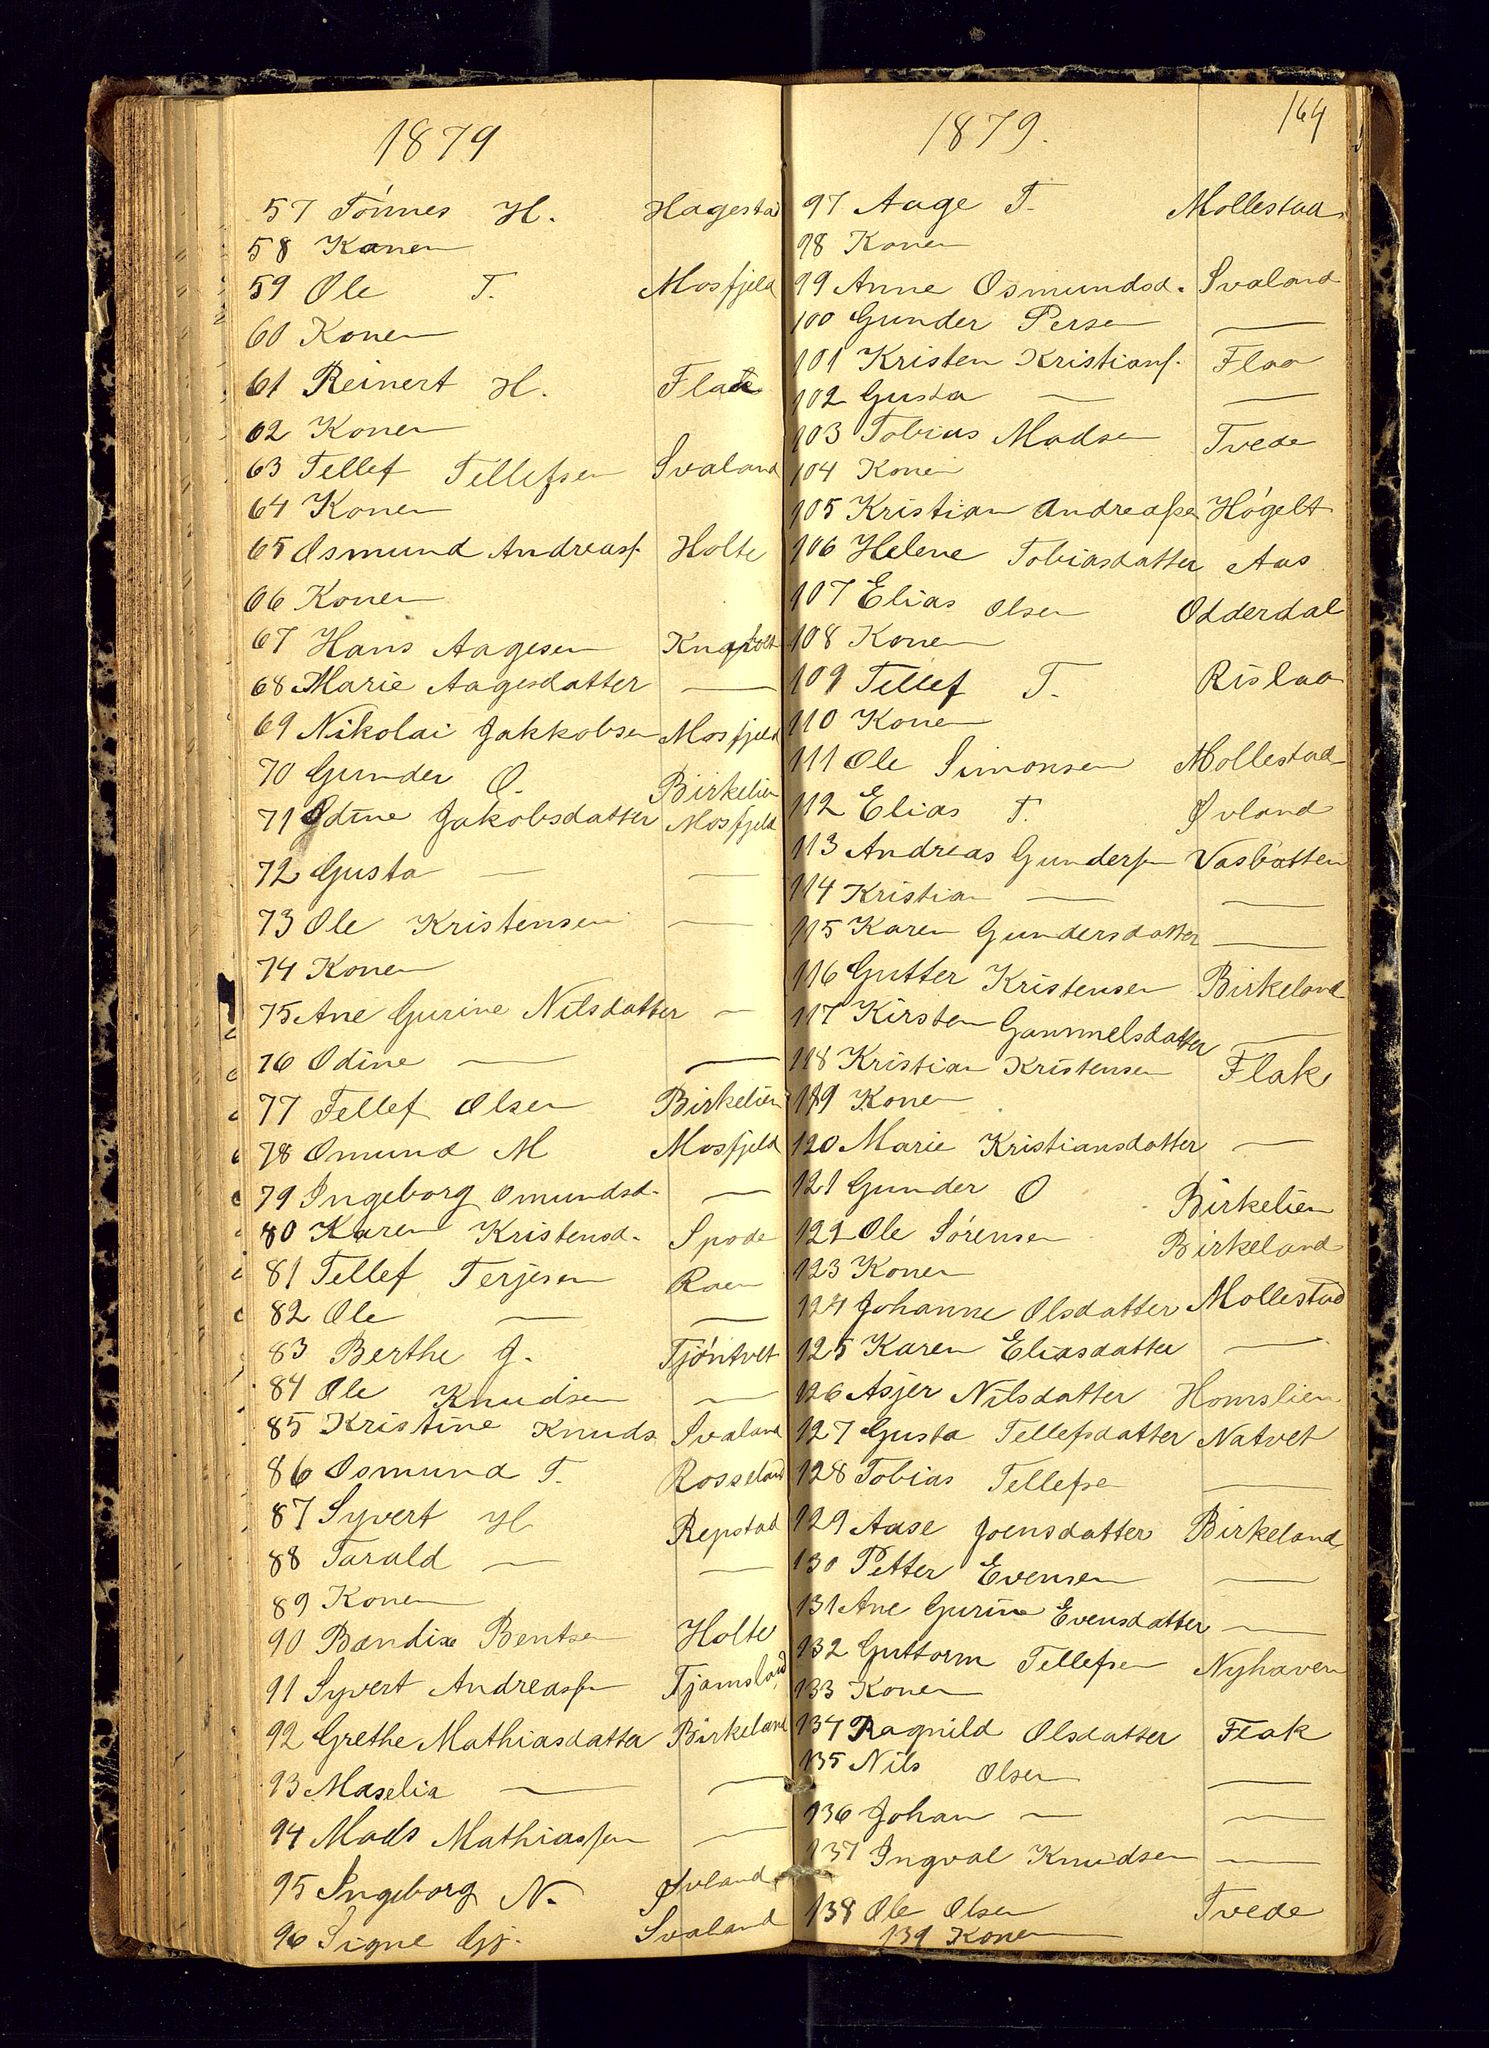 1879
57 Tónnes H. Hagestad
58 Konen
59 Ole T. Mosfjeld
60 Konen
61 Reinert H. Flak
62 Konen
63 Tellef Tellefsen Svaland
64 Konen
65 Osmund Andreasf. Holte
66 Konen
67 Hans Aagesen
68 Marie Aagesdatter —
69 Nikolai Jakkobsen Mosfjeld
70 Gunder O. Birkelien
71 Odine Jakobsdatter Mosfjeld
72 Gusta — —
73 Ole Kristensen —
74 Konen
75 Ane Gurine Nilsdatter —
76 Odine — —
77 Tellef Olsen Birkelien
78 Omund M Mosfjeld
79 Ingeborg Omundsd. —
80 Karen Kristensd. Spode
81 Tellef Terjesen Roen
82 Ole — —
83 Berthe J. Tjóntvet
84 Ole Knudsen —
85 Kristine Knuds Svaland
86 Osmund T. Rosseland
87 Syvert H Repstad
88 Tarald — —
89 Konen
90 Bendix Bentsen Holte
91 Syvert Andreassen Tjomsland
92 Grethe Mathiasdatter Birkeland
93 Maselia — —
94 Mads Mathiassen —
95 Ingeborg N. Øvland
96 Signe Gj. Svaland
1879. 164
97 Aage T. Mollestad
98 Konen
99 Anne Osmundsd. Svaland
100 Gunder Persen —
101 Kristen Kristiansf. Flaa
102 Gusta — —
103 Tobias Madsen Tvede
104 Konen
105 Kristian Andreassen Högelt
106 Helene Tobiasdatter Aas
107 Elias Olsen Odderdal
108 Konen
109 Tellef T. Rislaa
110 Konen
111 Ole Simonsen Mollestad
112 Elias T. Øvland
113 Andreas Gundersen Vasbotten
114 Kristian — —
115 Karen Gundersdatter —
116 Gutter Kristensen Birkeland
117 Kirsten Gammelsdatter —
118 Kristian Kristensen Flake
119 Konen
120 Marie Kristiansdatter —
121 Gunder O Birkelien
122 Ole Sörensen Birkeland
123 Konen
124 Johanne Olsdatter Mollestad
125 Karen Eliasdatter —
126 Asjer Nilsdatter Homslien
127 Gusta Tellefsdatter Natvet
128 Tobias Tellefsen —
129 Aase Joensdatter Birkeland
130 Petter Evensen —
131 Ane Gurine Evensdatter —
132 Guttorm Tellefsen Nyhaven
133 Konen
134 Ragnild Olsdatter Flak
135 Nils Olsen —
136 Johan — —
137 Ingval Knudsen —
138 Ole Olsen Tvede
139 Konen